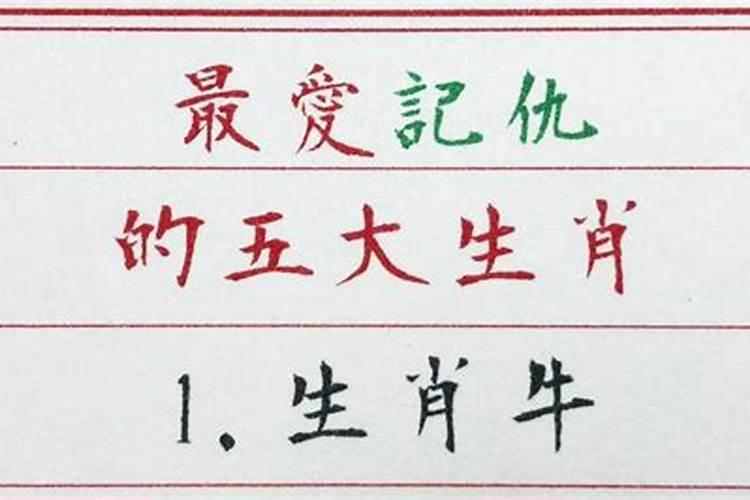 最愛記仇
的五大生肖
1.生肖牛